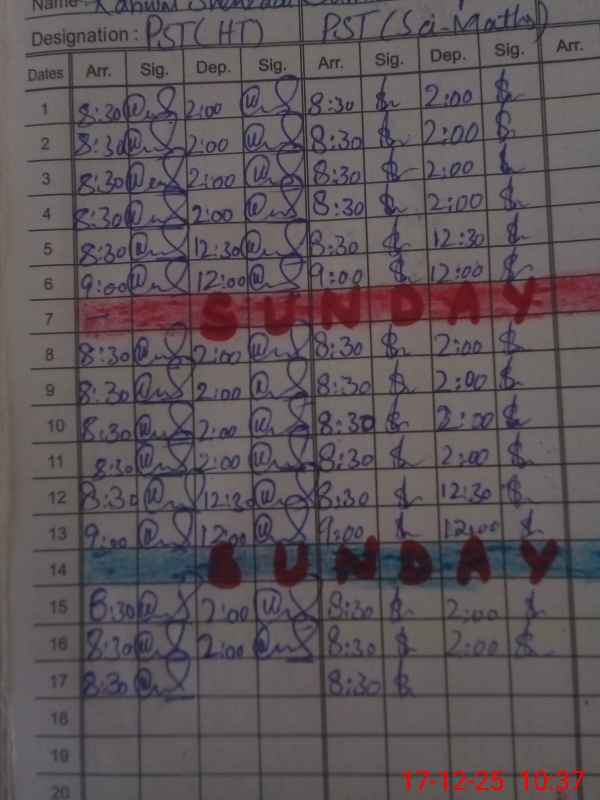 Name:
Designation: PST(HT) PST (Sci-Maths)
Dates Arr. Sig. Dep. Sig. Arr. Sig. Dep. Sig. Arr.
1 8:30 2:00 8:30 2:00
2 8:30 2:00 8:30 2:00
3 8:30 2:00 8:30 2:00
4 8:30 2:00 8:30 2:00
5 8:30 12:30 8:30 12:30
6 9:00 12:00 9:00 12:00
7 SUNDAY
8 8:30 2:00 8:30 2:00
9 8:30 2:00 8:30 2:00
10 8:30 2:00 8:30 2:00
11 8:30 2:00 8:30 2:00
12 8:30 12:30 8:30 12:30
13 9:00 12:00 9:00 12:00
14 SUNDAY
15 8:30 2:00 8:30 2:00
16 8:30 2:00 8:30 2:00
17 8:30 8:30
18
19
20
17-12-25 10:37